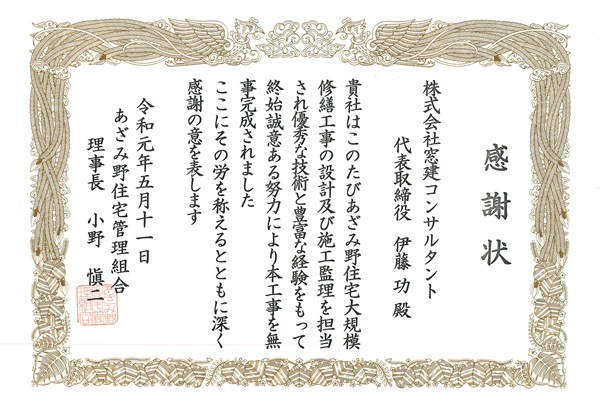 感謝状
株式会社窓建コンサルタント
代表取締役 伊藤 功 殿
貴社はこのたびあざみ野住宅大規模
修繕工事の設計及び施工監理を担当
され優秀な技術と豊富な経験をもって
終始誠意ある努力により本工事を無
事完成されました
ここにその労を称えるとともに深く
感謝の意を表します
令和元年五月十一日
あざみ野住宅管理組合
理事長 小野 愼二